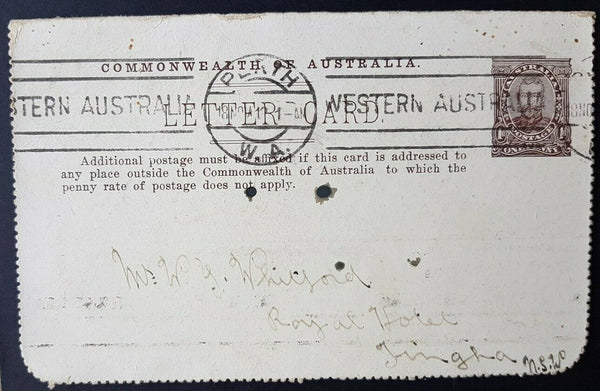 COMMONWEALTH OF AUSTRALIA.
PERTH
W.A.
STERN AUSTRALIA
WESTERN AUSTRA
AUSTRALIA
POSTAGE
ONE PENNY
LETTER CARD.
Additional postage must be affixed if this card is addressed to
any place outside the Commonwealth of Australia to which the
penny rate of postage does not apply.
Mr W. G. Whitford
Royal Hotel
Tingha N.S.W.